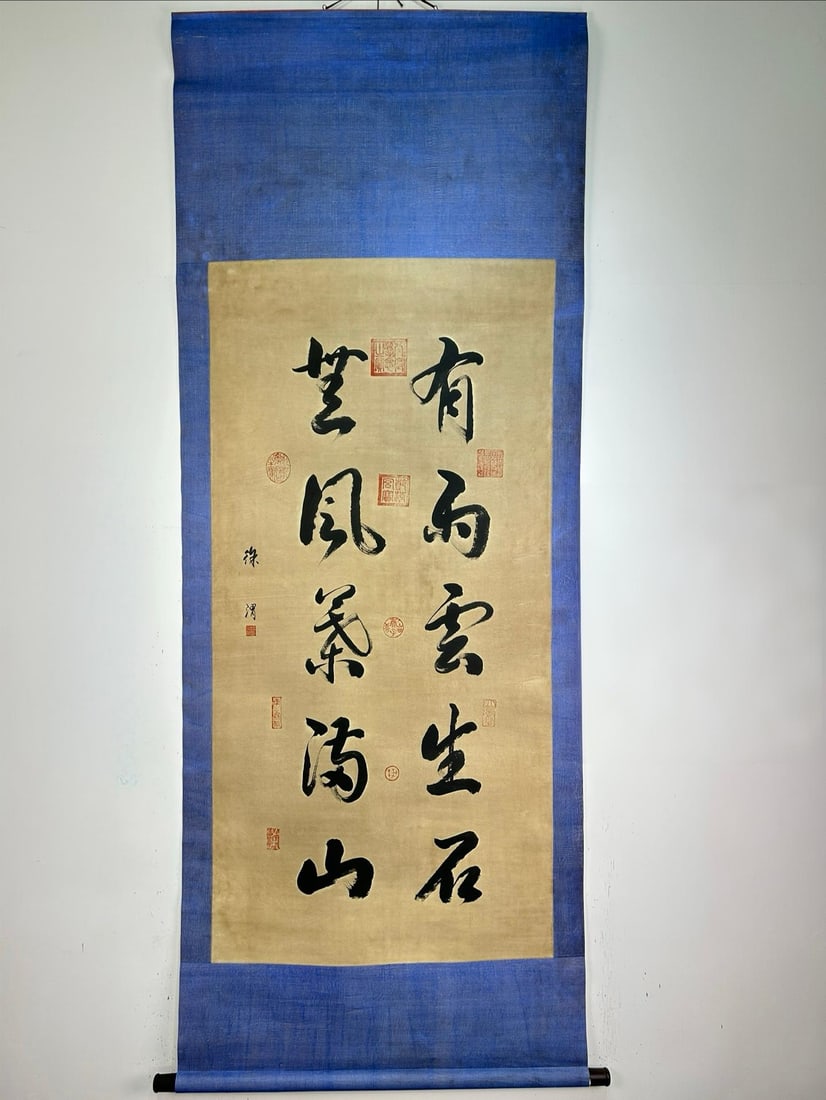 有雨雲生石
無風葉滿山
徐渭